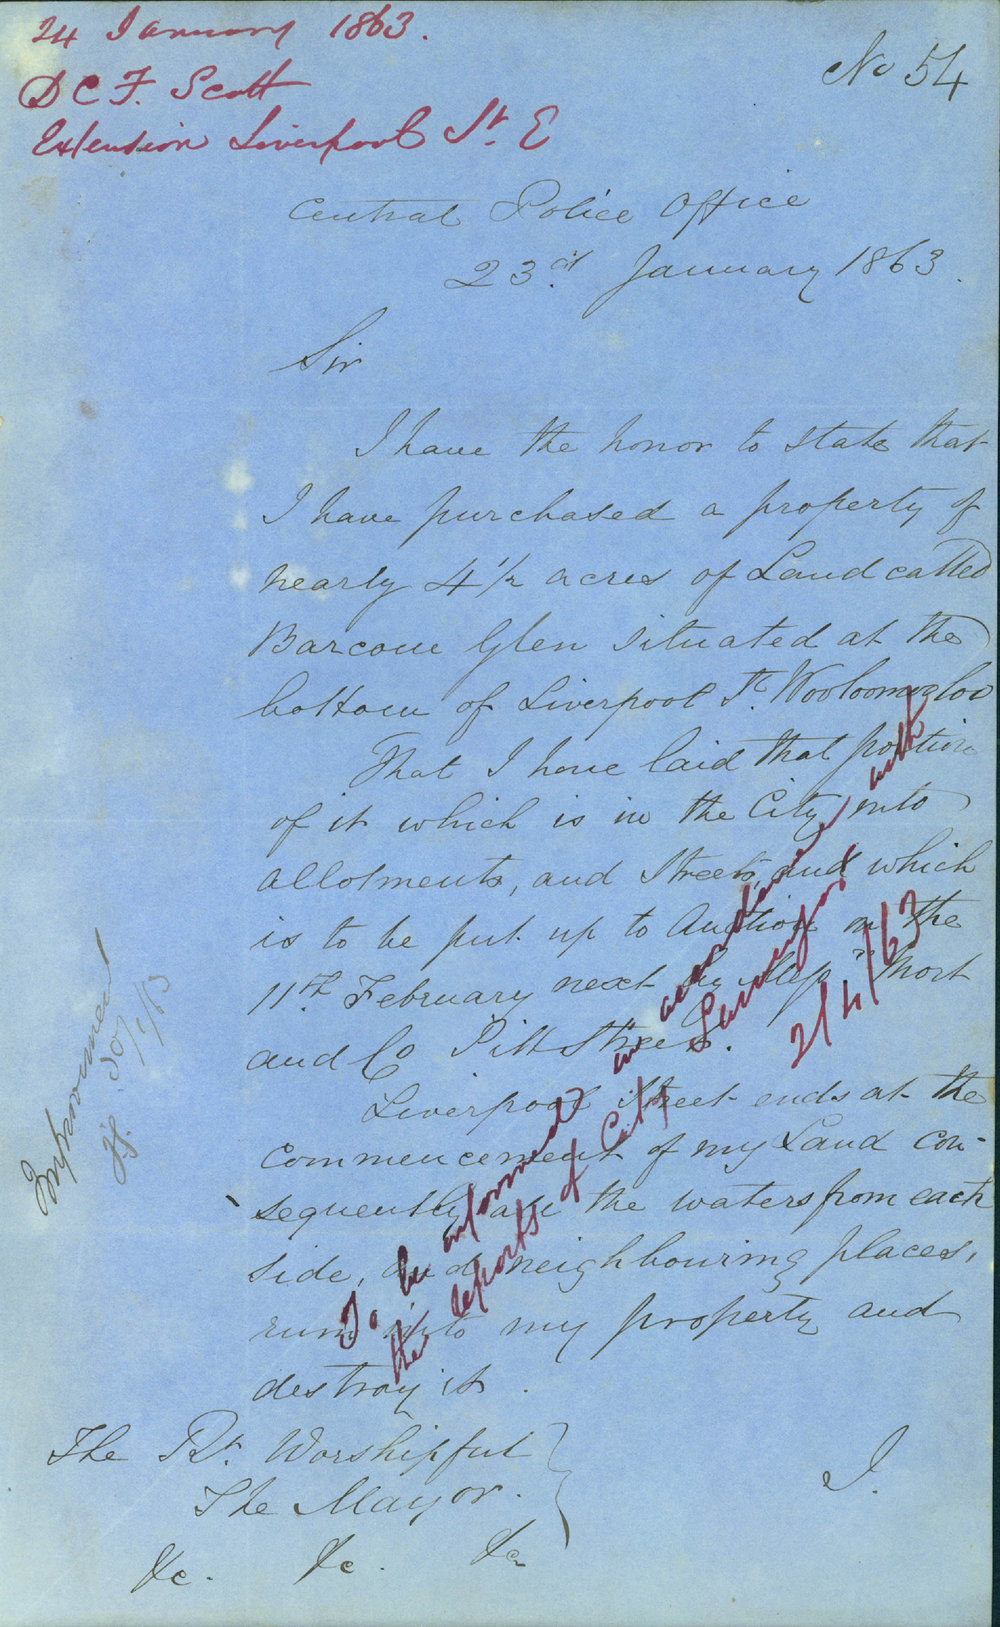 24 January 1863.
D C F. Scott
Extension Liverpool St. E
No 54
Central Police Office
23rd January 1863.
Sir
I have the honor to state that
I have purchased a property of
nearly 4 1/2 acres of Land called
Barcom Glen situated at the
bottom of Liverpool St. Wooloomooloo
That I have laid that portion
of it which is in the City into
allotments, and Streets, and which
is to be put up to Auction on the
11th February next by Messrs Mort
and Co Pitt Street.
Liverpool Street ends at the
commencement of my Land con-
sequently all the waters from each
side, and neighbouring places,
run into my property and
destroy it.
The Rt. Worshipful
The Mayor.
&c. &c. &c
I.
To be informed in accordance with
the reports of City Surveyor
2/4/63
Improvement
30/1/63